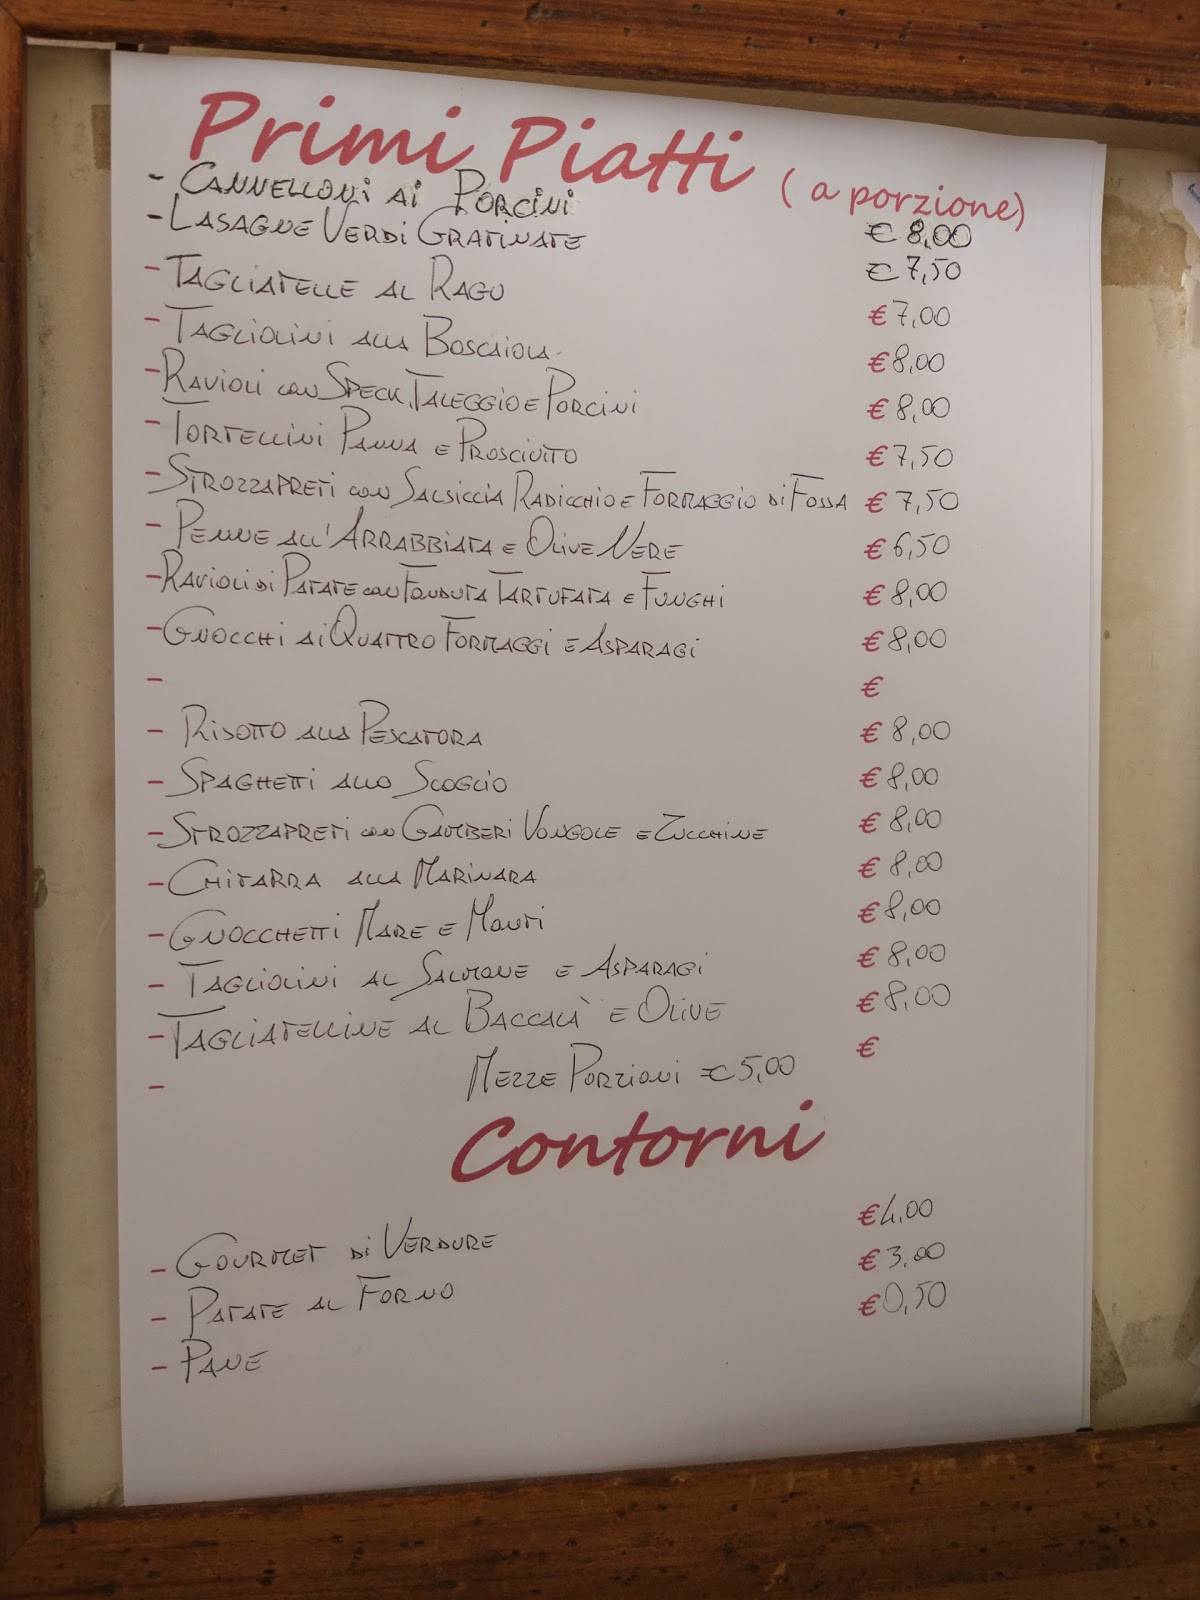 Primi Piatti (a porzione)
- CANNELLONI AI PORCINI € 8,00
- LASAGNE VERDI GRATINATE € 7,50
- TAGLIATELLE AL RAGU € 7,00
- TAGLIOLINI ALLA BOSCAIOLA. € 8,00
- RAVIOLI CON SPECK, TALEGGIO E PORCINI € 8,00
- TORTELLINI PANNA E PROSCIUTTO € 7,50
- STROZZAPRETI CON SALSICCIA RADICCHIO E FORMAGGIO DI FOSSA € 7,50
- PENNE ALL'ARRABBIATA E OLIVE NERE € 6,50
- RAVIOLI DI PATATE CON FONDUTA TARTUFATA E FUNGHI € 8,00
- GNOCCHI AI QUATTRO FORMAGGI E ASPARAGI € 8,00
- €
- RISOTTO ALLA PESCATORA € 8,00
- SPAGHETTI ALLO SCOGLIO € 8,00
- STROZZAPRETI CON GAMBERI VONGOLE E ZUCCHINE € 8,00
- CHITARRA ALLA MARINARA € 8,00
- GNOCCHETTI MARE E MONTI € 8,00
- TAGLIOLINI AL SALMONE E ASPARAGI € 8,00
- TAGLIATELLINE AL BACCALÀ E OLIVE € 8,00
- MEZZE PORZIONI € 5,00 €
Contorni
- GOURMET DI VERDURE € 4,00
- PATATE AL FORNO € 3,00
- PANE € 0,50